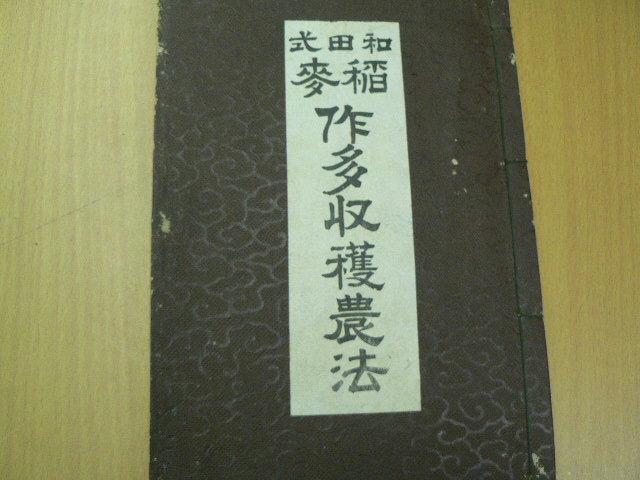 和田式
稲麥
作多収穫農法